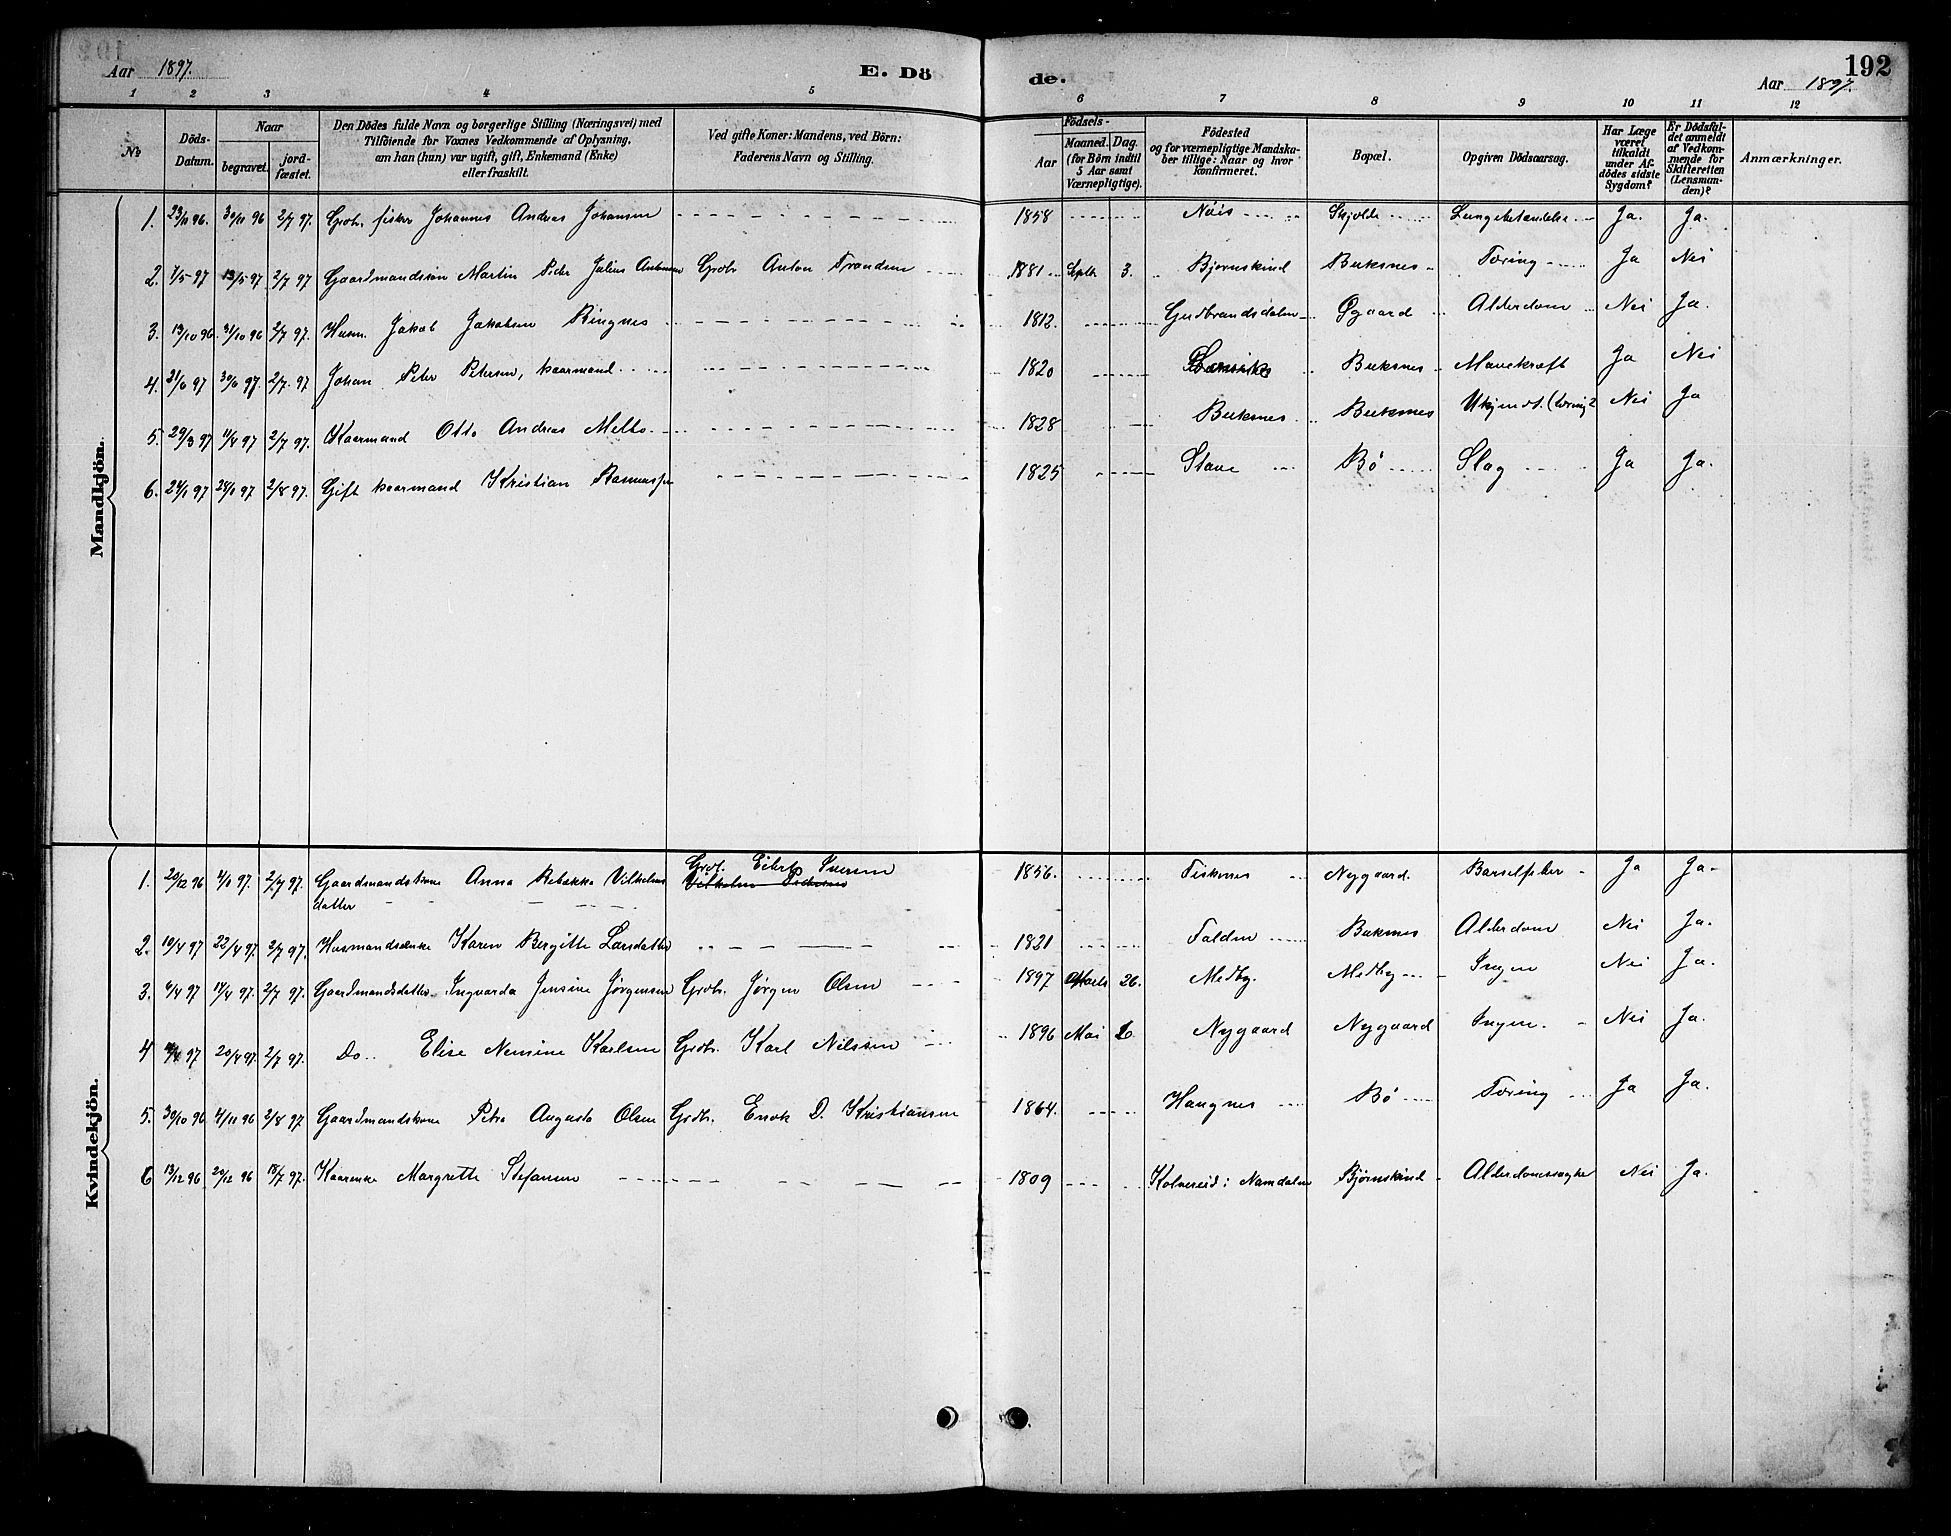 Aar 1897.
E. Dö
de.
192
Aar 1897.
1 2 3 4 5 6 7 8 9 10 11 12
№
Döds-Datum.
Naar
begravet.
jord-fæstet.
Den Dödes fulde Navn og borgerlige Stilling (Næringsvei) med
Tilföiende for Voxnes Vedkommende af Oplysning,
om han (hun) var ugift, gift, Enkemand (Enke)
eller fraskilt.
Ved gifte Koner: Mandens, ved Börn:
Faderens Navn og Stilling.
Födsels-
Aar
Maaned. Dag.
(for Börn indtil
5 Aar samt
Værnepligtige).
Födested
og for værnepligtige Mandska-
ber tillige: Naar og hvor
konfirmeret.
Bopæl.
Opgiven Dödsaarsag.
Har Læge
været
tilkaldt
under Af-
dödes sidste
Sygdom?
Er Dödsfal-
det anmeldt
af Vedkom-
mende for
Skifteretten
(Lensman-
den)?
Anmærkninger.
Mandkjön.
1. 23/11 96. 30/11 96 2/7 97. Grbr. fisker Johannes Andreas Johansen 1858 Nöis Skjolde Lungebetændelse Ja. Ja.
2. 7/5 97 13/5 97 2/7 97 Gaardmandssön Martin Peder Julius Antonsen Grbr Anton Trondsen 1881 Septbr 3. Bjørnskind Buksnes Tæring Ja Nei
3. 13/10 96. 31/10 96 2/7 97. Husm. Jakob Jakobsen Ringnes 1812. Gudbrandsdalen Øgaard Alderdom Nei Ja.
4. 21/6 97 30/6 97. 2/7 97 Johan Peter Petersen, kaarmand 1820 Buksnes Mavekræft Ja Nei
5. 29/3 97 4/4 97 2/7 97. Kaarmand Otto Andreas Melbo 1828 Buksnes Buksnes Ukjendt. (tæring? Nei Ja
6. 24/1 97 28/1 97 2/8 97. Gift kaarmand Kristian Rasmussen 1825 Stave Bö Slag Ja Ja.
Kvindekjön.
1. 20/12 96 4/1 97. 2/7 97. Gaardmandskone Anna Rebekka Vilhelms Grbr. Eilert Iversen 1856. Fiskenes Nygaard. Barselfeber Ja Ja
datter Vilhelm Pedersen
2. 10/4 97 22/4 97. 2/7 97. Husmandsenke Karen Bergitte Larsdatter 1821 Folden Buksnes Alderdom Nei Ja.
3. 6/4 97 14/4 97. 2/7 97. Gaardmandsdatter Ingvarda Jensine Jørgensen Grbr. Jørgen Olsen 1897 Marts 26. Medby. Medby Ingen Nei Ja.
4 97 20/4 97. 2/7 97. Do. Elise Nensine Karlsen Grbr. Karl Nilssen 1896 Mai Nygaard Nygaard Ingen. Nei Ja.
5. 30/10 96 4/11 96 2/8 97 Gaardmandskone Petra Augusta Olsen Grbr. Enok D. Kristiansen 1864. Haugnes Bö Tæring Ja Ja.
6 13/12 96 20/12 96 18/7 97. Kaarenke Margrethe Stefansen 1809 Kolvereid i Namdalen Bjørnskind Alderdomssvaghed Nei Ja.